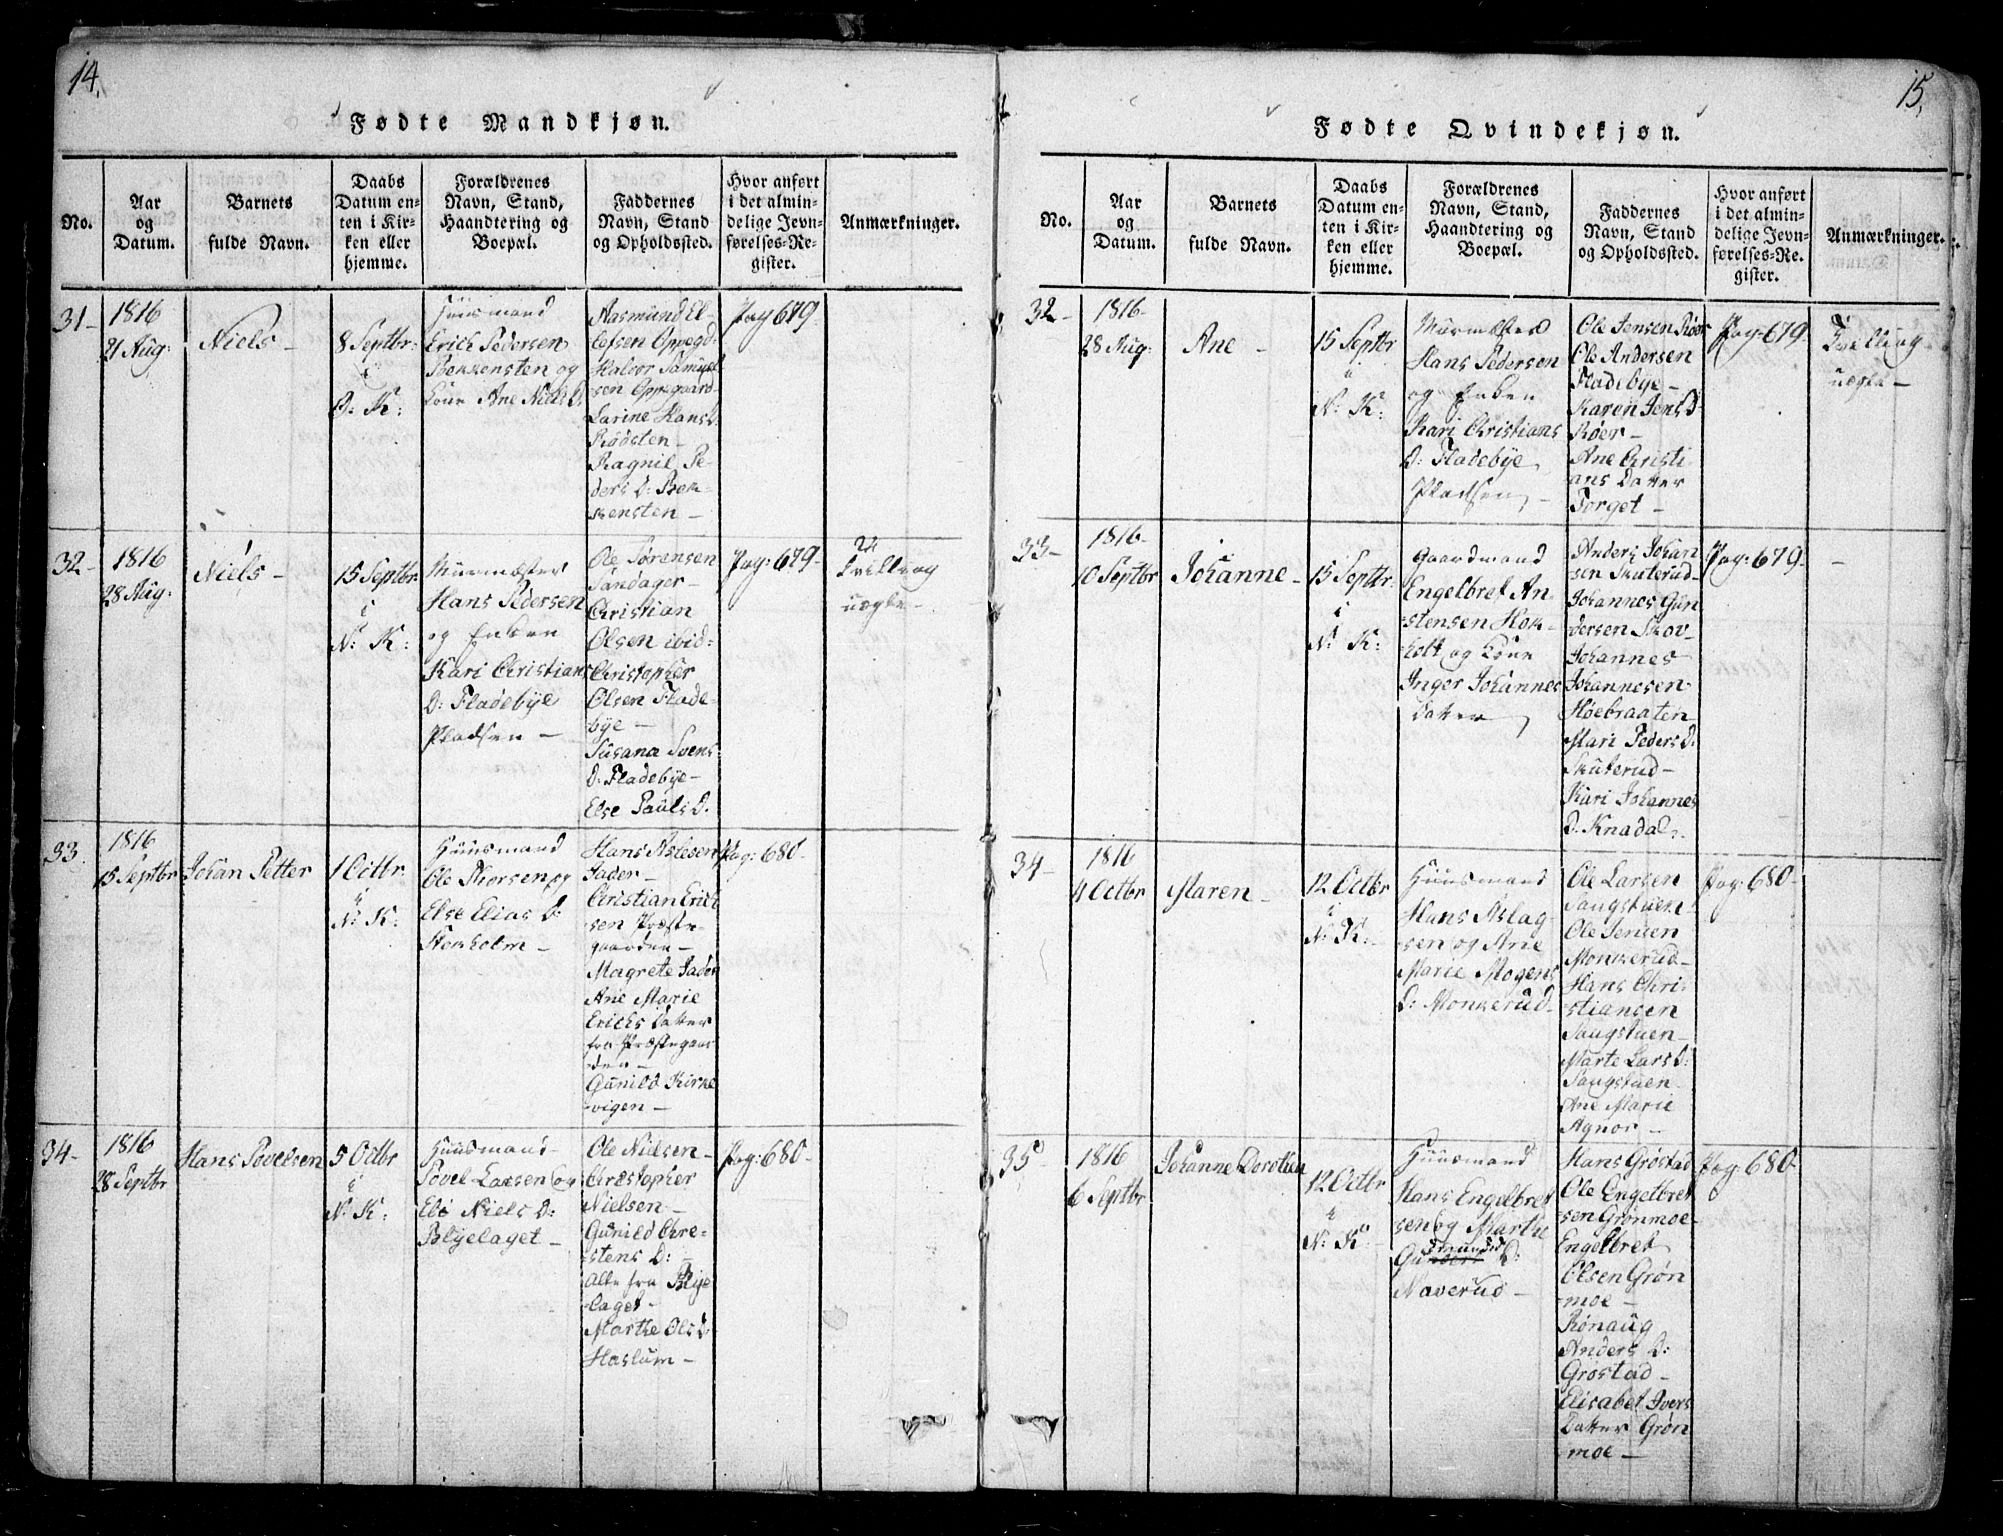 14.
Fødte Mandkjøn.
No.
Aar
og
Datum.
Barnets
fulde Navn.
Daabs
Datum en-
ten i Kir-
ken eller
hjemme.
Forældrenes
Navn, Stand,
Haandtering og
Boepæl.
Faddernes
Navn, Stand
og Opholdssted.
Hvor anført
i det almin-
delige Jevn-
førelses-Re-
gister.
Anmærkninger.
31-
1816
21 Aug:
Niels -
8 Septbr:
i
D: K:
Huusmand
Erich Pedersen
Bekkensten og
Kone Ane Niels D:
Aasmund El-
lefsen Oppegd:
Halvor Samuel
sen Oppegaard
Larine Hans D.
Rødsten -
Ragnil Pe-
ders D: Bek-
kensten -
Pag 679-
32-
1816
28 Aug:
Niels -
15 Septbr:
i
N: K:
Murmester
Hans Pedersen
og Enken
Kari Christians
D: Fladebye
Pladsen -
Ole Sørensen
Sandager -
Christian
Olsen ibid:
Christopher
Olsen Flade-
bye -
Susana Svens
D: Fladebye -
Else Pauls D.
Pag: 679-
Tvilling
uægte -
33.
1816
15 Septbr
Johan Petter
1 Octbr
i
N: K:
Huusmand
Ole Thorsen og
Else Elias D:
Stokholm -
Hans Aslesen
Jader -
Christian Erich
sen Præste-
gaarden -
Magrete Jader
Ane Marie
Erichs Datter
fra Præstegaar
den -
Gunild Kirke
vigen -
Pag: 680-
34-
1816
28 Septbr
Hans Povelsen
5 Octbr
i
N: K:
Huusmand
Povel Larsen og
Eli Niels D:
Blyelaget -
Ole Nielsen -
Christopher
Nielsen -
Gunild Chre-
stens D: -
alle fra Blye
laget -
Marthe Ols D:
Haslum -
Pag: 680-
15.
Fødte Qvindekjøn.
No.
Aar
og
Datum.
Barnets
fulde Navn.
Daabs
Datum en-
ten i Kir-
ken eller
hjemme.
Forældrenes
Navn, Stand,
Haandtering og
Boepæl.
Faddernes
Navn, Stand
og Opholdssted.
Hvor anført
i det almin-
delige Jevn-
førelses-Re-
gister.
Anmærkninger.
32-
1816-
28 Aug:
Ane -
15 Septbr
i
N: K:
Murmester
Hans Pedersen
og Enken
Kari Christians
D: Fladebye
Pladsen -
Ole Jensen Røer
Ole Andersen
Fladebye -
Karen Jens D
Røer -
Ane Christi
ans Datter
Torget -
Pag: 679-
Tvilling
uægte -
33-
1816-
10 Septbr
Johanne -
15 Septbr:
i
N: K:
Gaardmand
Engelbret An-
stensen Hok-
holt og Kone
Inger Johannes
Datter
Anders Johan
sen Skuterud -
Johannes Gun
dersen Skov -
Johannes
Johannesen
Høebraaten
Mari Peders D:
Skuterud -
Kari Johannes
D: Knadal -
Pag: 679-
-
34-
1816
4 Octbr
Maren -
12 Octbr
i
N: K: -
Huusmand
Hans Aslag-
sen og Ane
Marie Mogens
D: Monkerud -
Ole Larsen
Saugstuen -
Ole Jensen
Monkerud -
Hans Chri-
stiansen
Saugstuen -
Marte Lars D:
Saugstuen -
Ane Marie
Agnor -
Pag: 680-
35-
1816
6 Septbr
Johanne Dorothea
12 Octbr
i
N: K: -
Huusmand
Hans Engelbret
sen og Marthe
Gudmunds D:
Naverud -
Hans Grøstad
Ole Engelbret
sen Grønmoe -
Engelbret
Olsen Grøn
moe -
Rønaug
Anders D:
Grøstad -
Elisabet Ivers
Datter Grøn
moe -
Pag: 680-